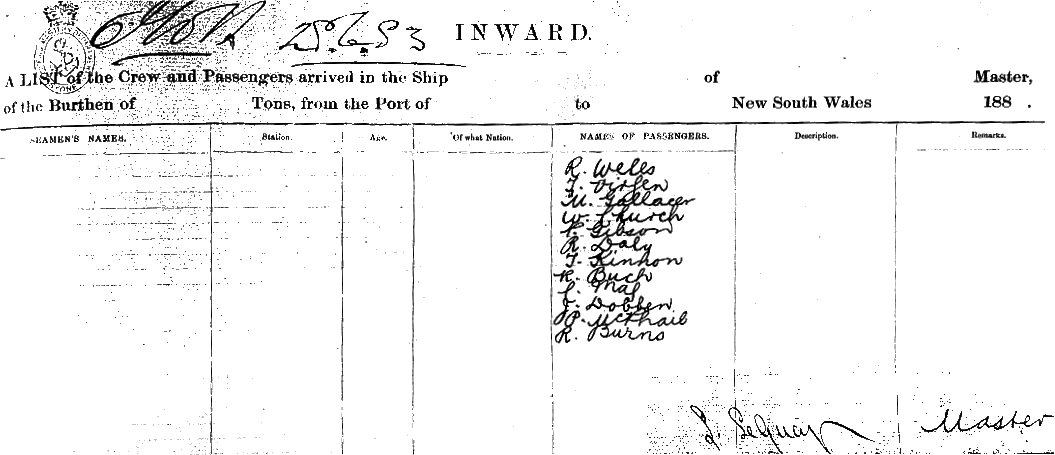 28.6.83 INWARD.
A LIST of the Crew and Passengers arrived in the Ship of Master,
of the Burthen of Tons, from the Port of to New South Wales 188 .
SEAMEN'S NAMES. Station. Age. Of what Nation. NAMES OF PASSENGERS. Description. Remarks.
R. Weles
T.
M. Gallacer
W. Church
Gibson
R. Daly
T. Kinhon
R. Buch
Mal
Dobben
P. McPhail
R. Burns
Master